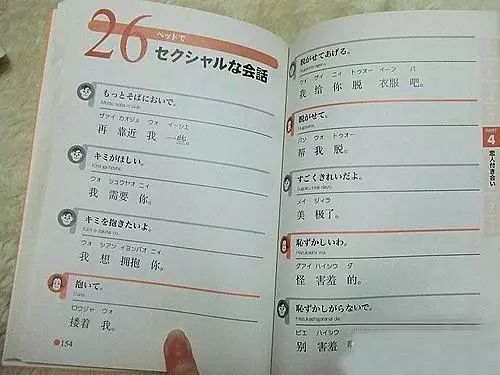 26
ベッドで
セクシャルな会話
もっとそばにおいで。
ヅァイ カオジェ ウォ イーシエ
再 靠近 我 一些。
キミがほしい。
ウォ シュウヤオ ニィ
我 需要 你。
キミを抱きたいよ。
ウォ シアン イヨンバオ ニィ
我 想 拥抱 你。
抱いて。
Daite.
ロウジャ ウォ
搂着 我。
154
脱がせてあげる。
ウォ ゲイ ニィ トゥオー イーフ バ
我 给 你 脱 衣服 吧。
脱がせて。
Nugasete.
バン ウォ トゥオー
帮 我 脱。
すごくきれいだよ。
Sugoku kirei dayo.
メイ ジィラ
美 极了。
恥ずかしいわ。
Hazukashii wa.
グアイ ハイシウ ダ
怪 害羞 的。
恥ずかしがらないで。
Hazukashigaranai de.
ビエ ハイシウ
别 害羞
PART
4
恋人付き合い